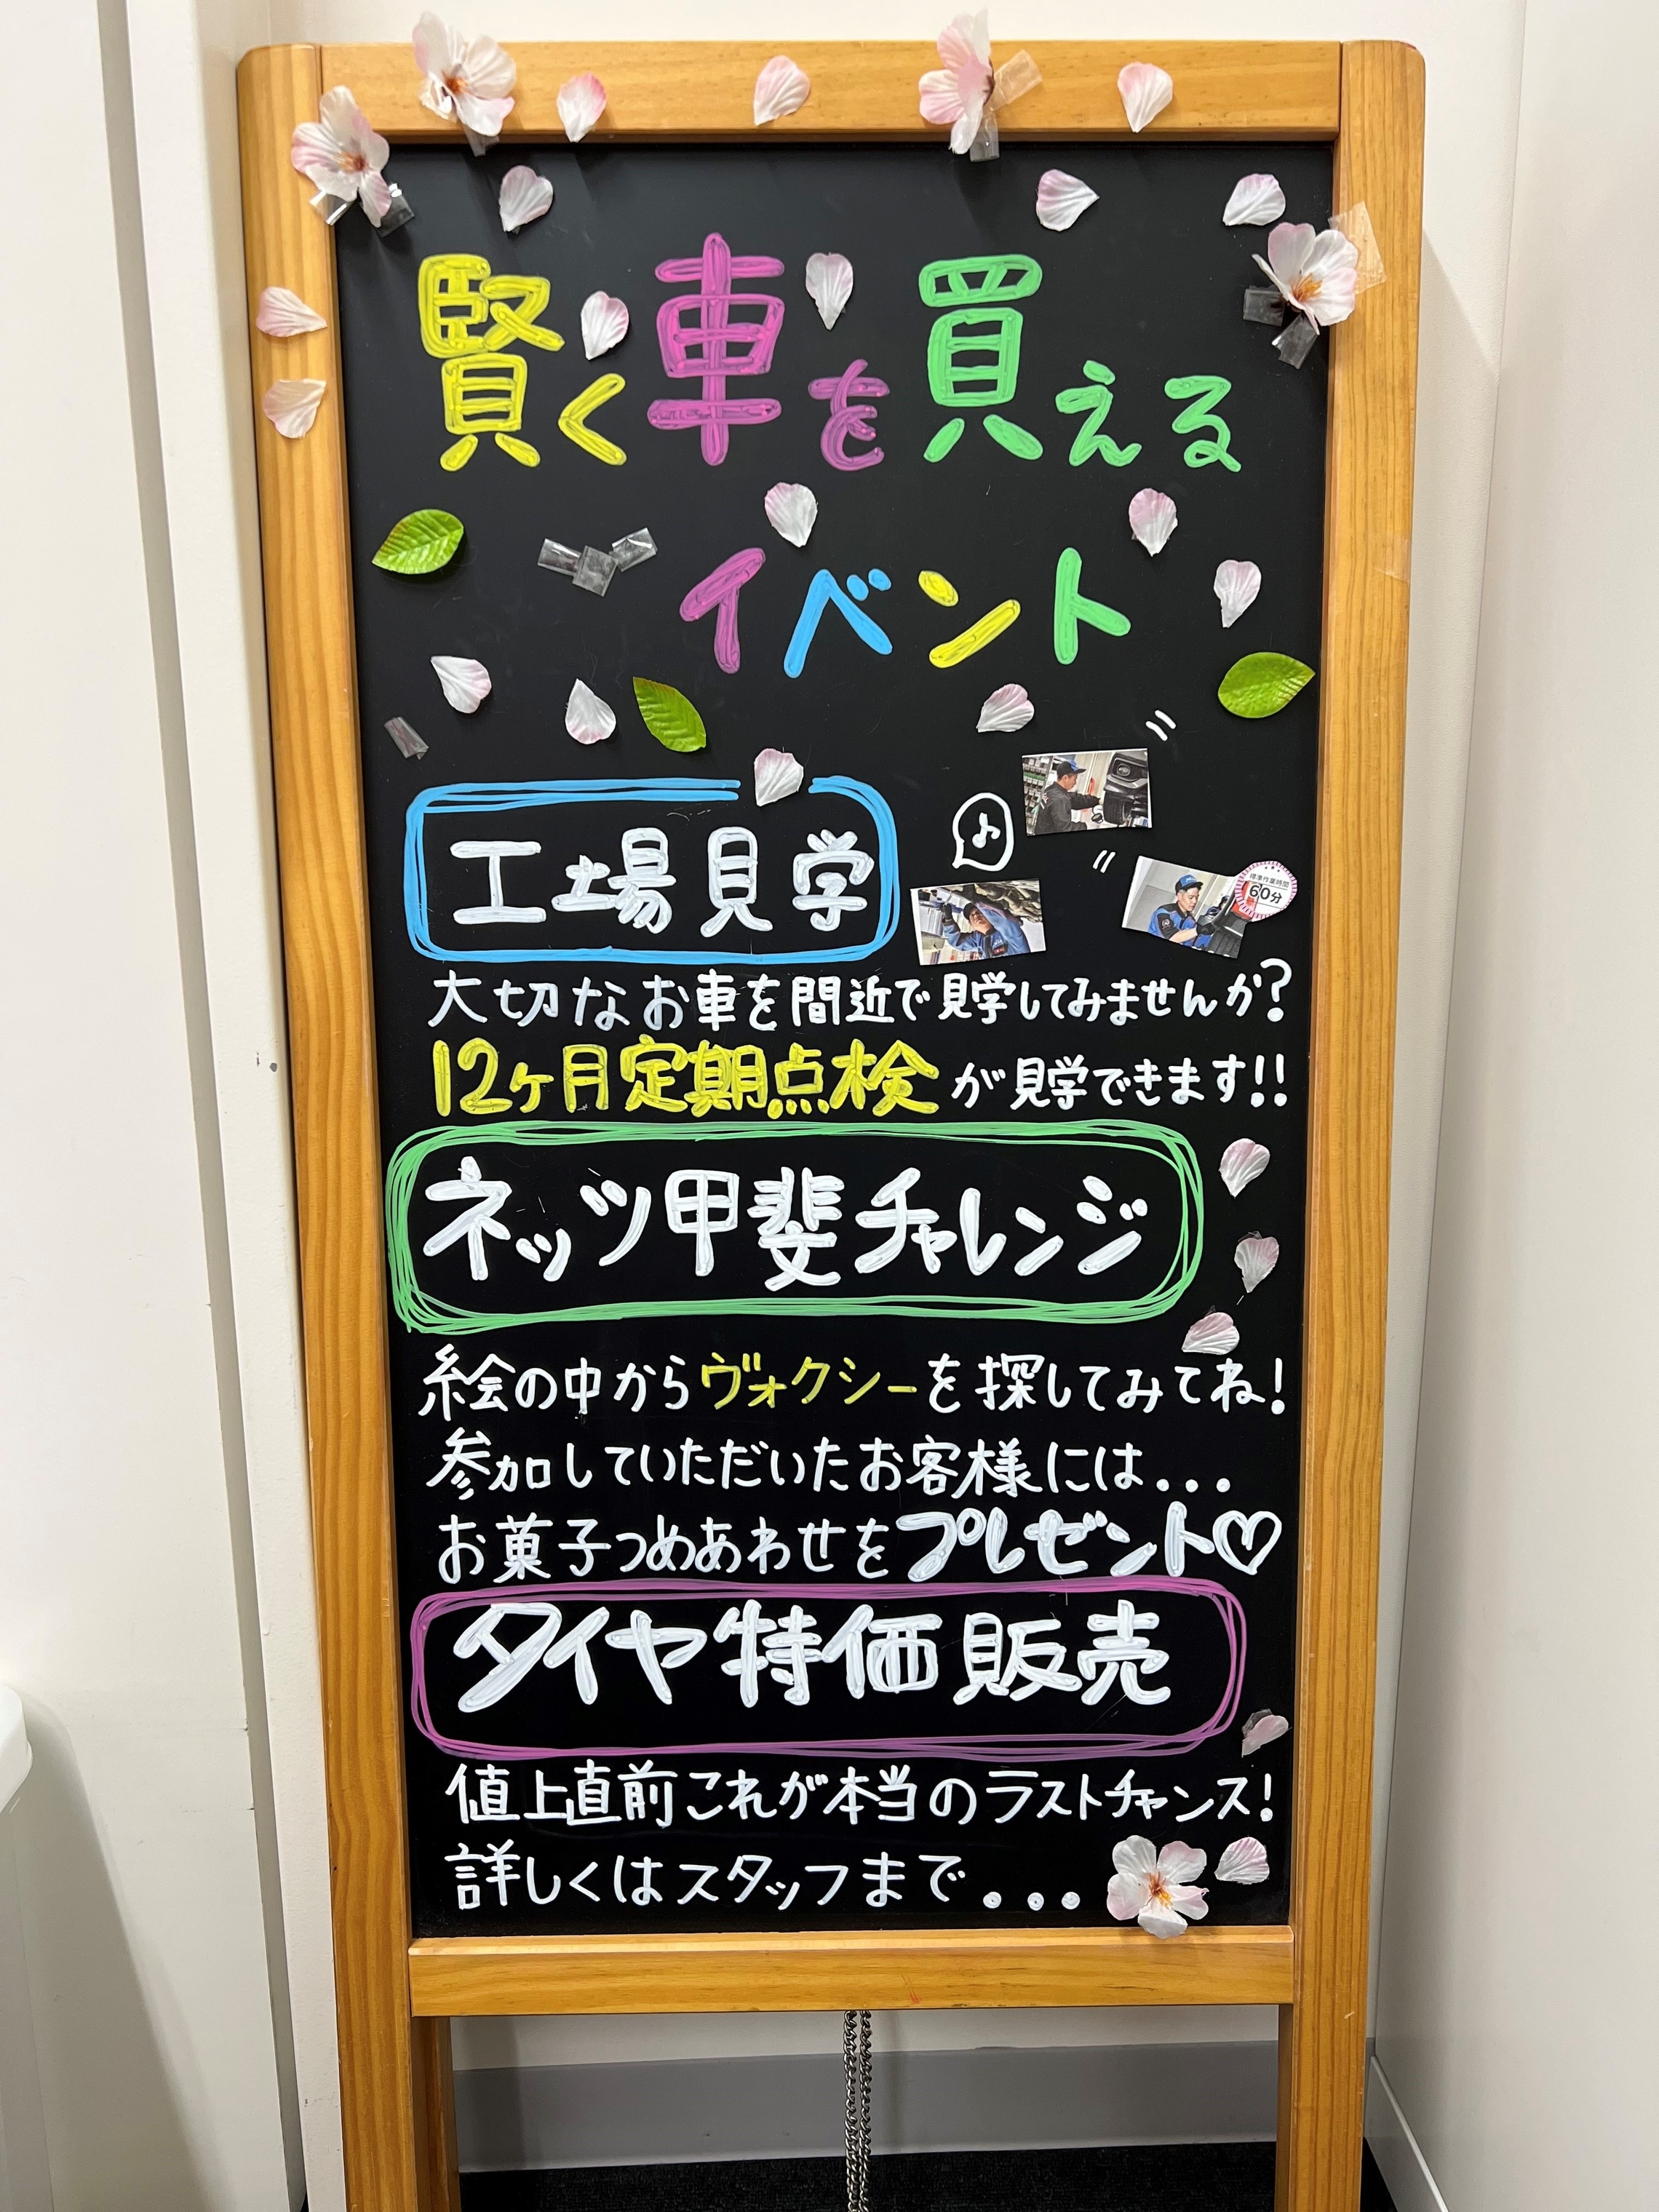 賢く車を買える
イベント
工場見学
標準作業時間
60分
大切なお車を間近で見学してみませんか?
12ヶ月定期点検が見学できます!!
ネッツ甲斐チャレンジ
絵の中からヴォクシーを探してみてね!
参加していただいたお客様には...
お菓子つめあわせをプレゼント♡
タイヤ特価販売
値上直前これが本当のラストチャンス!
詳しくはスタッフまで...